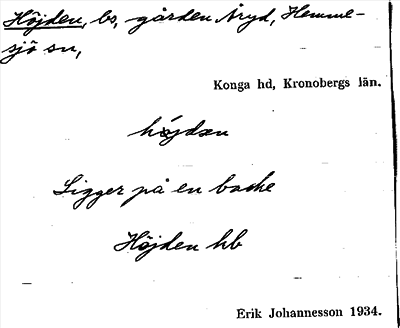 Höjden, bs, gården Åryd, Hemme-
sjö sn,
Konga hd, Kronobergs län.
hǿjdən
Ligger på en backe
Höjden hb
Erik Johannesson 1934.